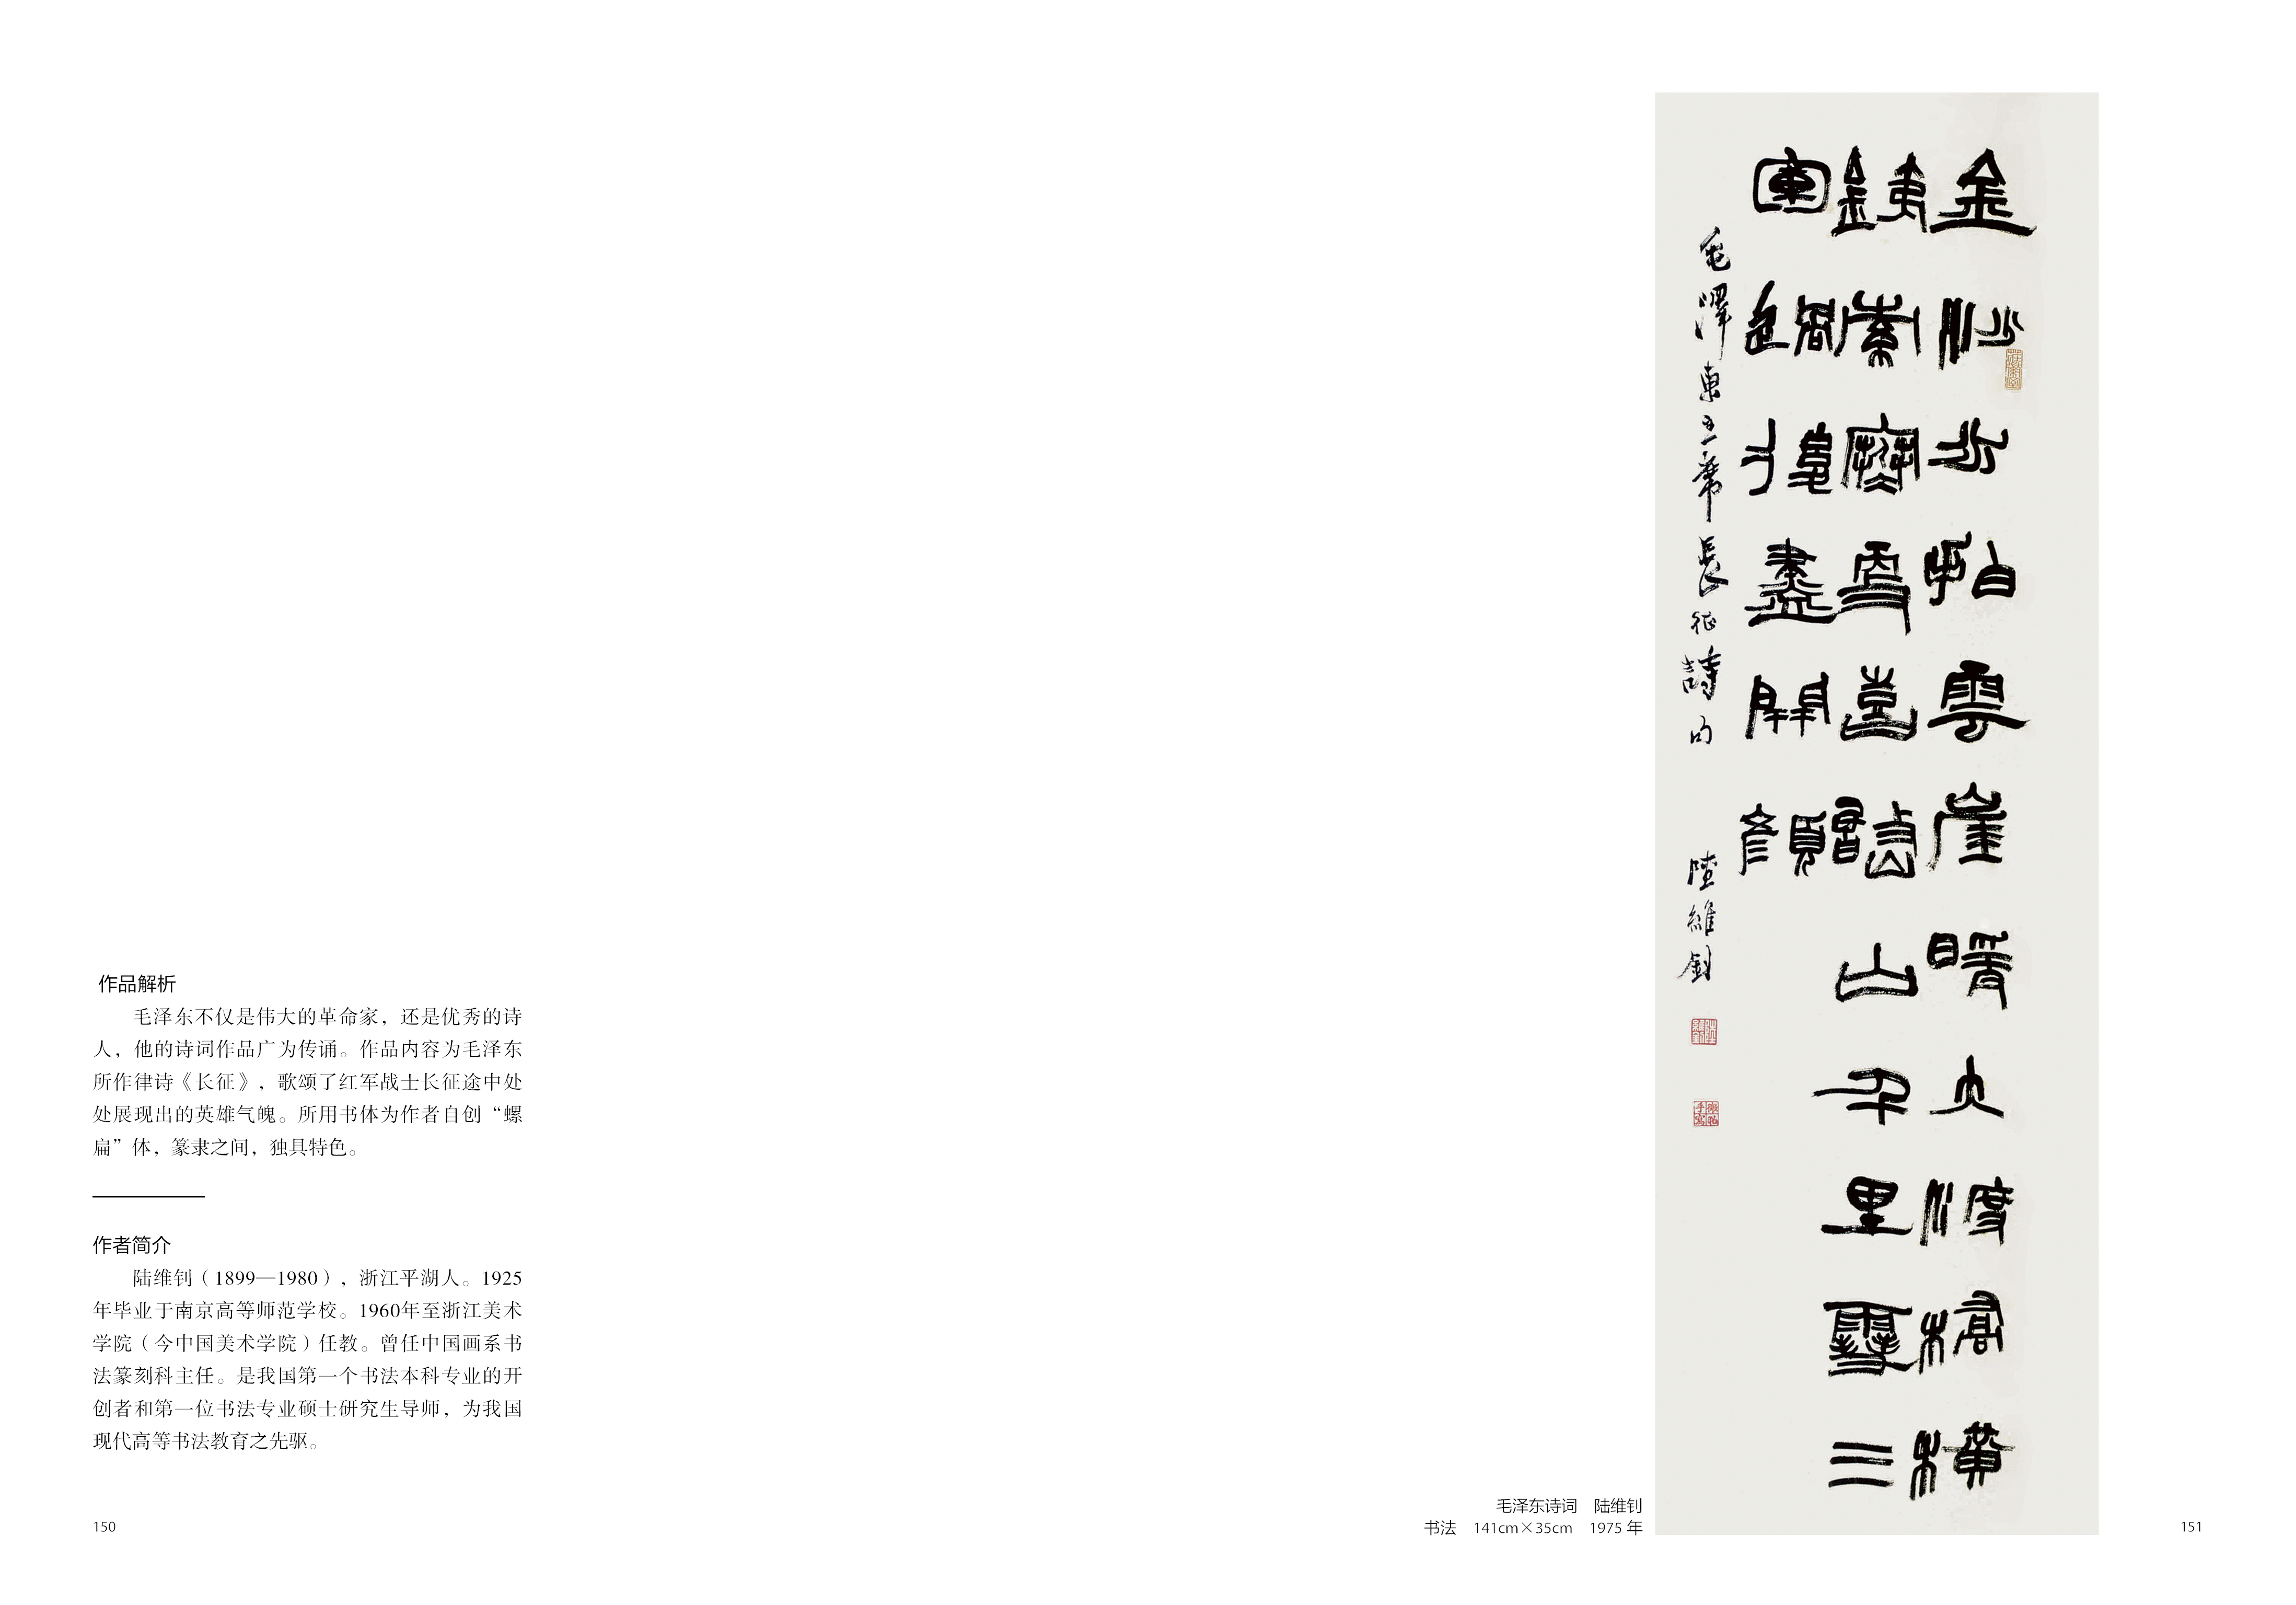 作品解析
毛泽东不仅是伟大的革命家，还是优秀的诗
人，他的诗词作品广为传诵。作品内容为毛泽东
所作律诗《长征》，歌颂了红军战士长征途中处
处展现出的英雄气魄。所用书体为作者自创“螺
扁”体，篆隶之间，独具特色。
作者简介
陆维钊（1899—1980），浙江平湖人。1925
年毕业于南京高等师范学校。1960年至浙江美术
学院（今中国美术学院）任教。曾任中国画系书
法篆刻科主任。是我国第一个书法本科专业的开
创者和第一位书法专业硕士研究生导师，为我国
现代高等书法教育之先驱。
150
金沙水拍雲崖暖大渡橋橫
銕索寒更喜岷山千里雪三
軍過後盡開顏
毛澤東主席長征詩句 陸維釗
毛泽东诗词 陆维钊
书法 141cm×35cm 1975 年
151